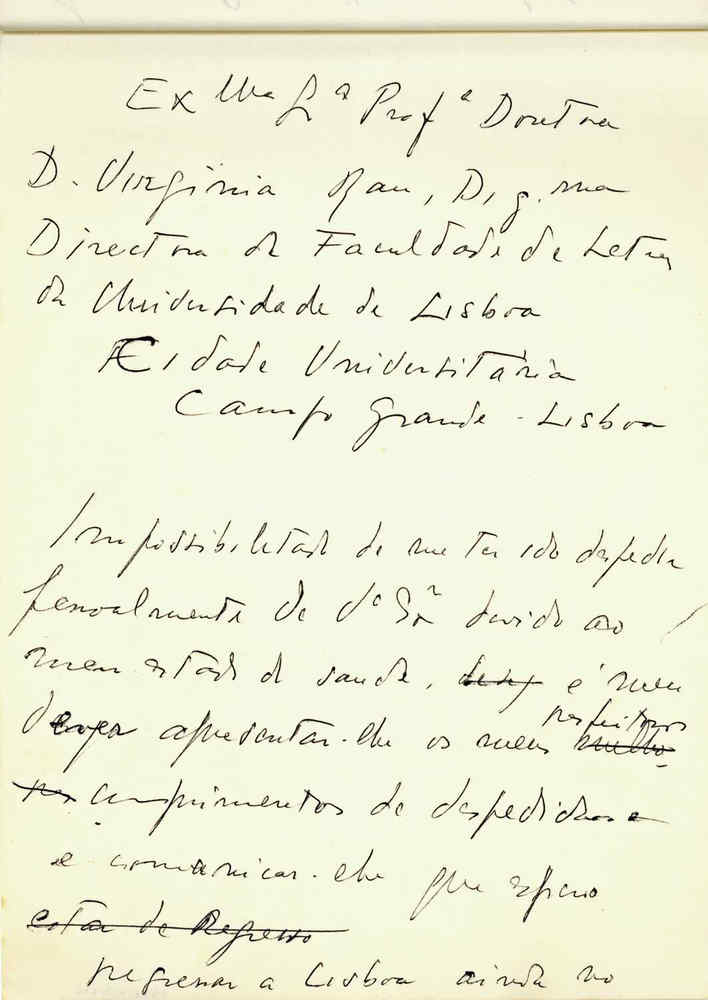 Exma Srª Profª Doutora
D. Virgínia Rau, Dig.ma
Directora da Faculdade de Letras
da Universidade de Lisboa
Cidade Universitária
Campo Grande - Lisboa
Impossibilitado de me ter ido despedir
pessoalmente de Vª Srª devido ao
meu estado de saude, é meu
apresentar-lhe os meus respeitosos
cumprimentos de despedida
e comunicar-lhe que espero
estar de Regresso
regressar a Lisboa ainda no